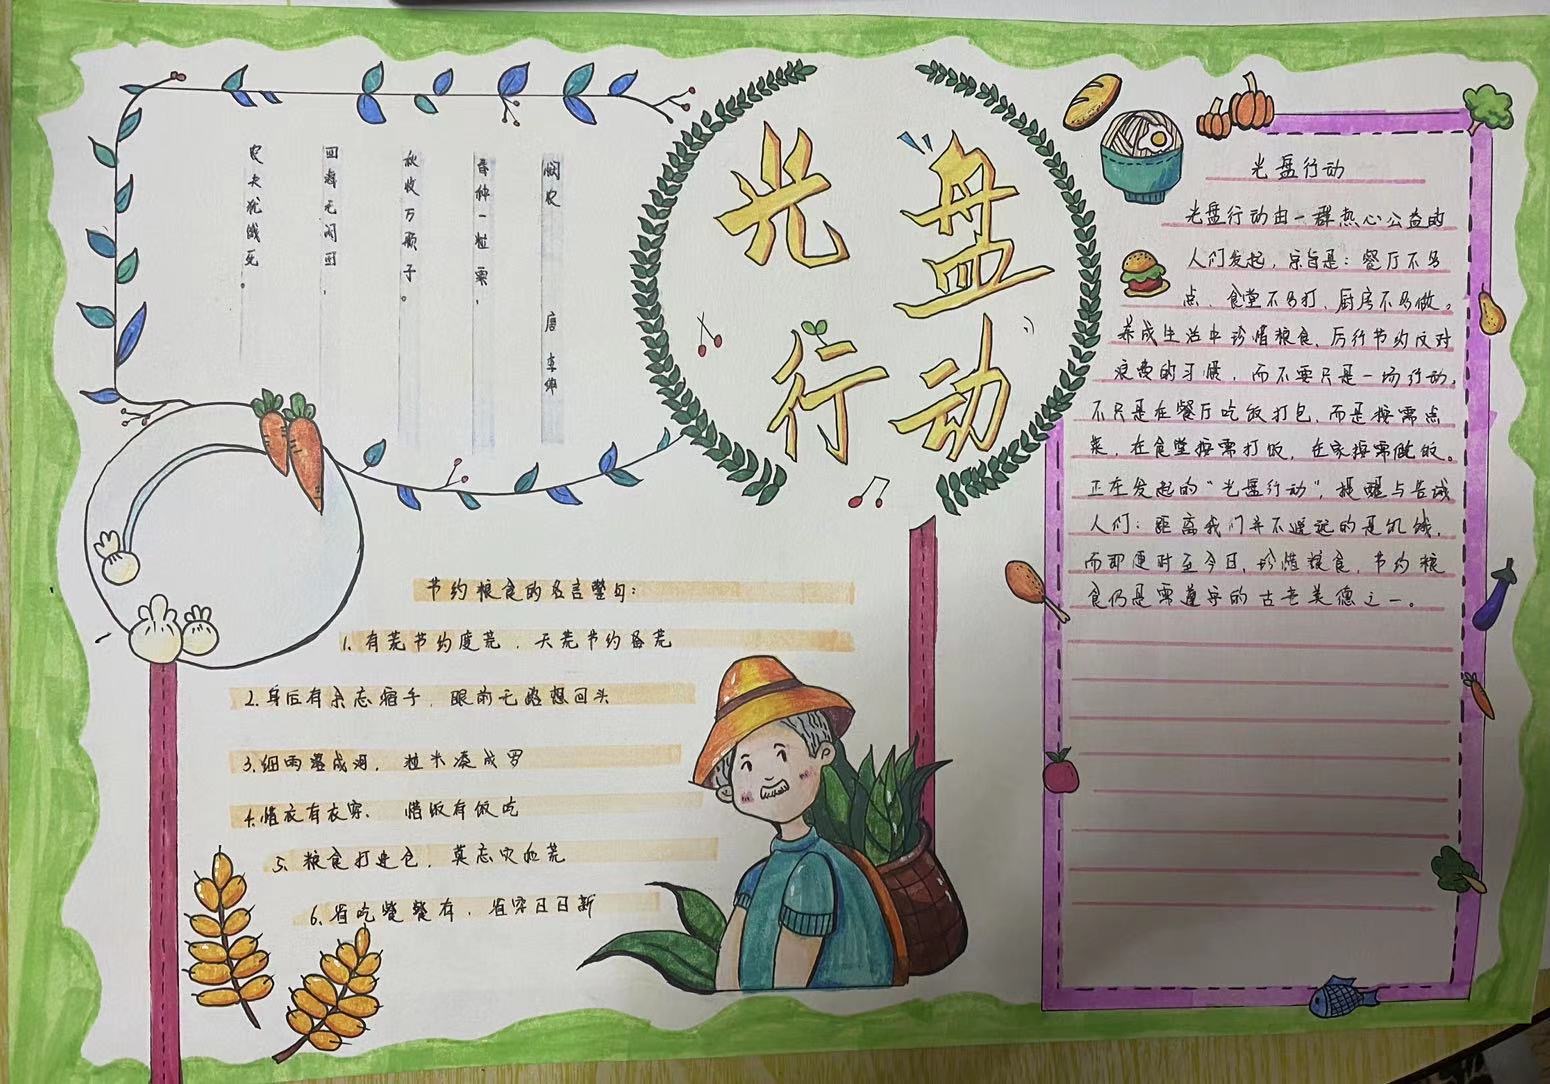 悯农 唐 李绅
春种一粒粟，
秋收万颗子。
四海无闲田，
农夫犹饿死。
光盘
行动
节约粮食的名言警句：
1.有荒节约度荒，天荒节约备荒
2.身后有余忘缩手，眼前无路想回头
3.细雨落成河，粒米凑成罗
4.惜衣有衣穿、惜饭有饭吃
5.粮食打进仓，莫忘灾和荒
6.省吃餐餐有，省穿日日新
光盘行动
光盘行动由一群热心公益的
人们发起，宗旨是：餐厅不多
点、食堂不多打、厨房不多做。
养成生活中珍惜粮食、厉行节约反对
浪费的习惯，而不要只是一场行动。
不只是在餐厅吃饭打包，而是按需点
菜，在食堂按需打饭，在家按需做饭。
正在发起的“光盘行动”，提醒与告诫
人们：距离我们并不遥远的是饥饿，
而即便时至今日，珍惜粮食，节约粮
食仍是需遵守的古老美德之一。